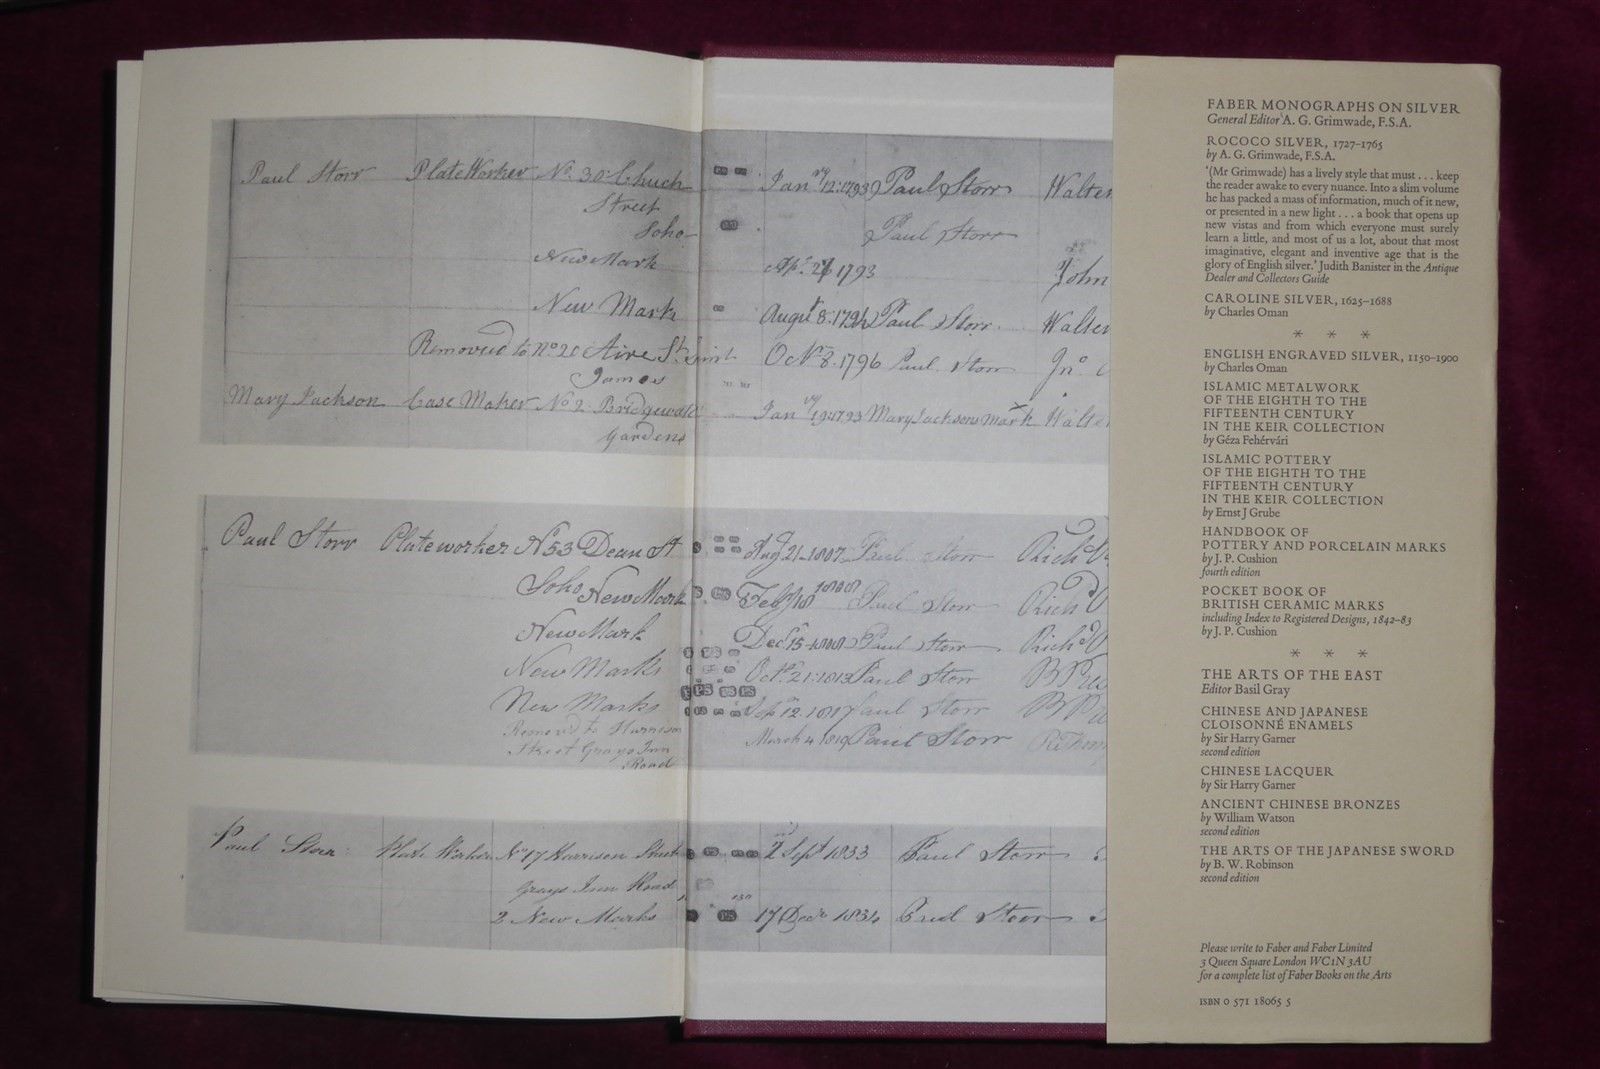 Paul Storr Plate Worker No. 30 Chuch Jany 12: 1793 Paul Storr Walter
Street
Soho Paul Storr
New Mark Apl. 27 1793 John
New Mark Augst 8: 1794 Paul Storr. Walter
Removed to No 20 Aire St. Saint Octr 8. 1796 Paul Storr Jno.
James
Mary Jackson Case Maker No 2 Bridgewater Jany 19: 1793 Mary Jacksons mark Walter
Gardens
Paul Storr Plateworker No 53 Dean St Aug 21-1807 Paul Storr Richd
Soho New Mark Feby 18 1808 Paul Storr Richd
New Mark Decr 15-1808 Paul Storr Richd
New Marks Octr. 21: 1813 Paul Storr
New Marks Sep 12. 1817 Paul Storr
Removed to Harrison March 4 1819 Paul Storr
Street Grays Inn
Road
Paul Storr Plate Worker No 17 Harrison Street 2 Sept 1833 Paul Storr
Grays Inn Road
2 New Marks PS 17 Decr 1834 Paul Storr
FABER MONOGRAPHS ON SILVER
General Editor A. G. Grimwade, F.S.A.
ROCOCO SILVER, 1727–1765
by A. G. Grimwade, F.S.A.
'(Mr Grimwade) has a lively style that must . . . keep
the reader awake to every nuance. Into a slim volume
he has packed a mass of information, much of it new,
or presented in a new light . . . a book that opens up
new vistas and from which everyone must surely
learn a little, and most of us a lot, about that most
imaginative, elegant and inventive age that is the
glory of English silver.' Judith Banister in the Antique
Dealer and Collectors Guide
CAROLINE SILVER, 1625–1688
by Charles Oman
* * *
ENGLISH ENGRAVED SILVER, 1150–1900
by Charles Oman
ISLAMIC METALWORK
OF THE EIGHTH TO THE
FIFTEENTH CENTURY
IN THE KEIR COLLECTION
by Géza Fehérvári
ISLAMIC POTTERY
OF THE EIGHTH TO THE
FIFTEENTH CENTURY
IN THE KEIR COLLECTION
by Ernst J Grube
HANDBOOK OF
POTTERY AND PORCELAIN MARKS
by J. P. Cushion
fourth edition
POCKET BOOK OF
BRITISH CERAMIC MARKS
including Index to Registered Designs, 1842–83
by J. P. Cushion
* * *
THE ARTS OF THE EAST
Editor Basil Gray
CHINESE AND JAPANESE
CLOISONNÉ ENAMELS
by Sir Harry Garner
second edition
CHINESE LACQUER
by Sir Harry Garner
ANCIENT CHINESE BRONZES
by William Watson
second edition
THE ARTS OF THE JAPANESE SWORD
by B. W. Robinson
second edition
Please write to Faber and Faber Limited
3 Queen Square London WC1N 3AU
for a complete list of Faber Books on the Arts
ISBN 0 571 18065 5